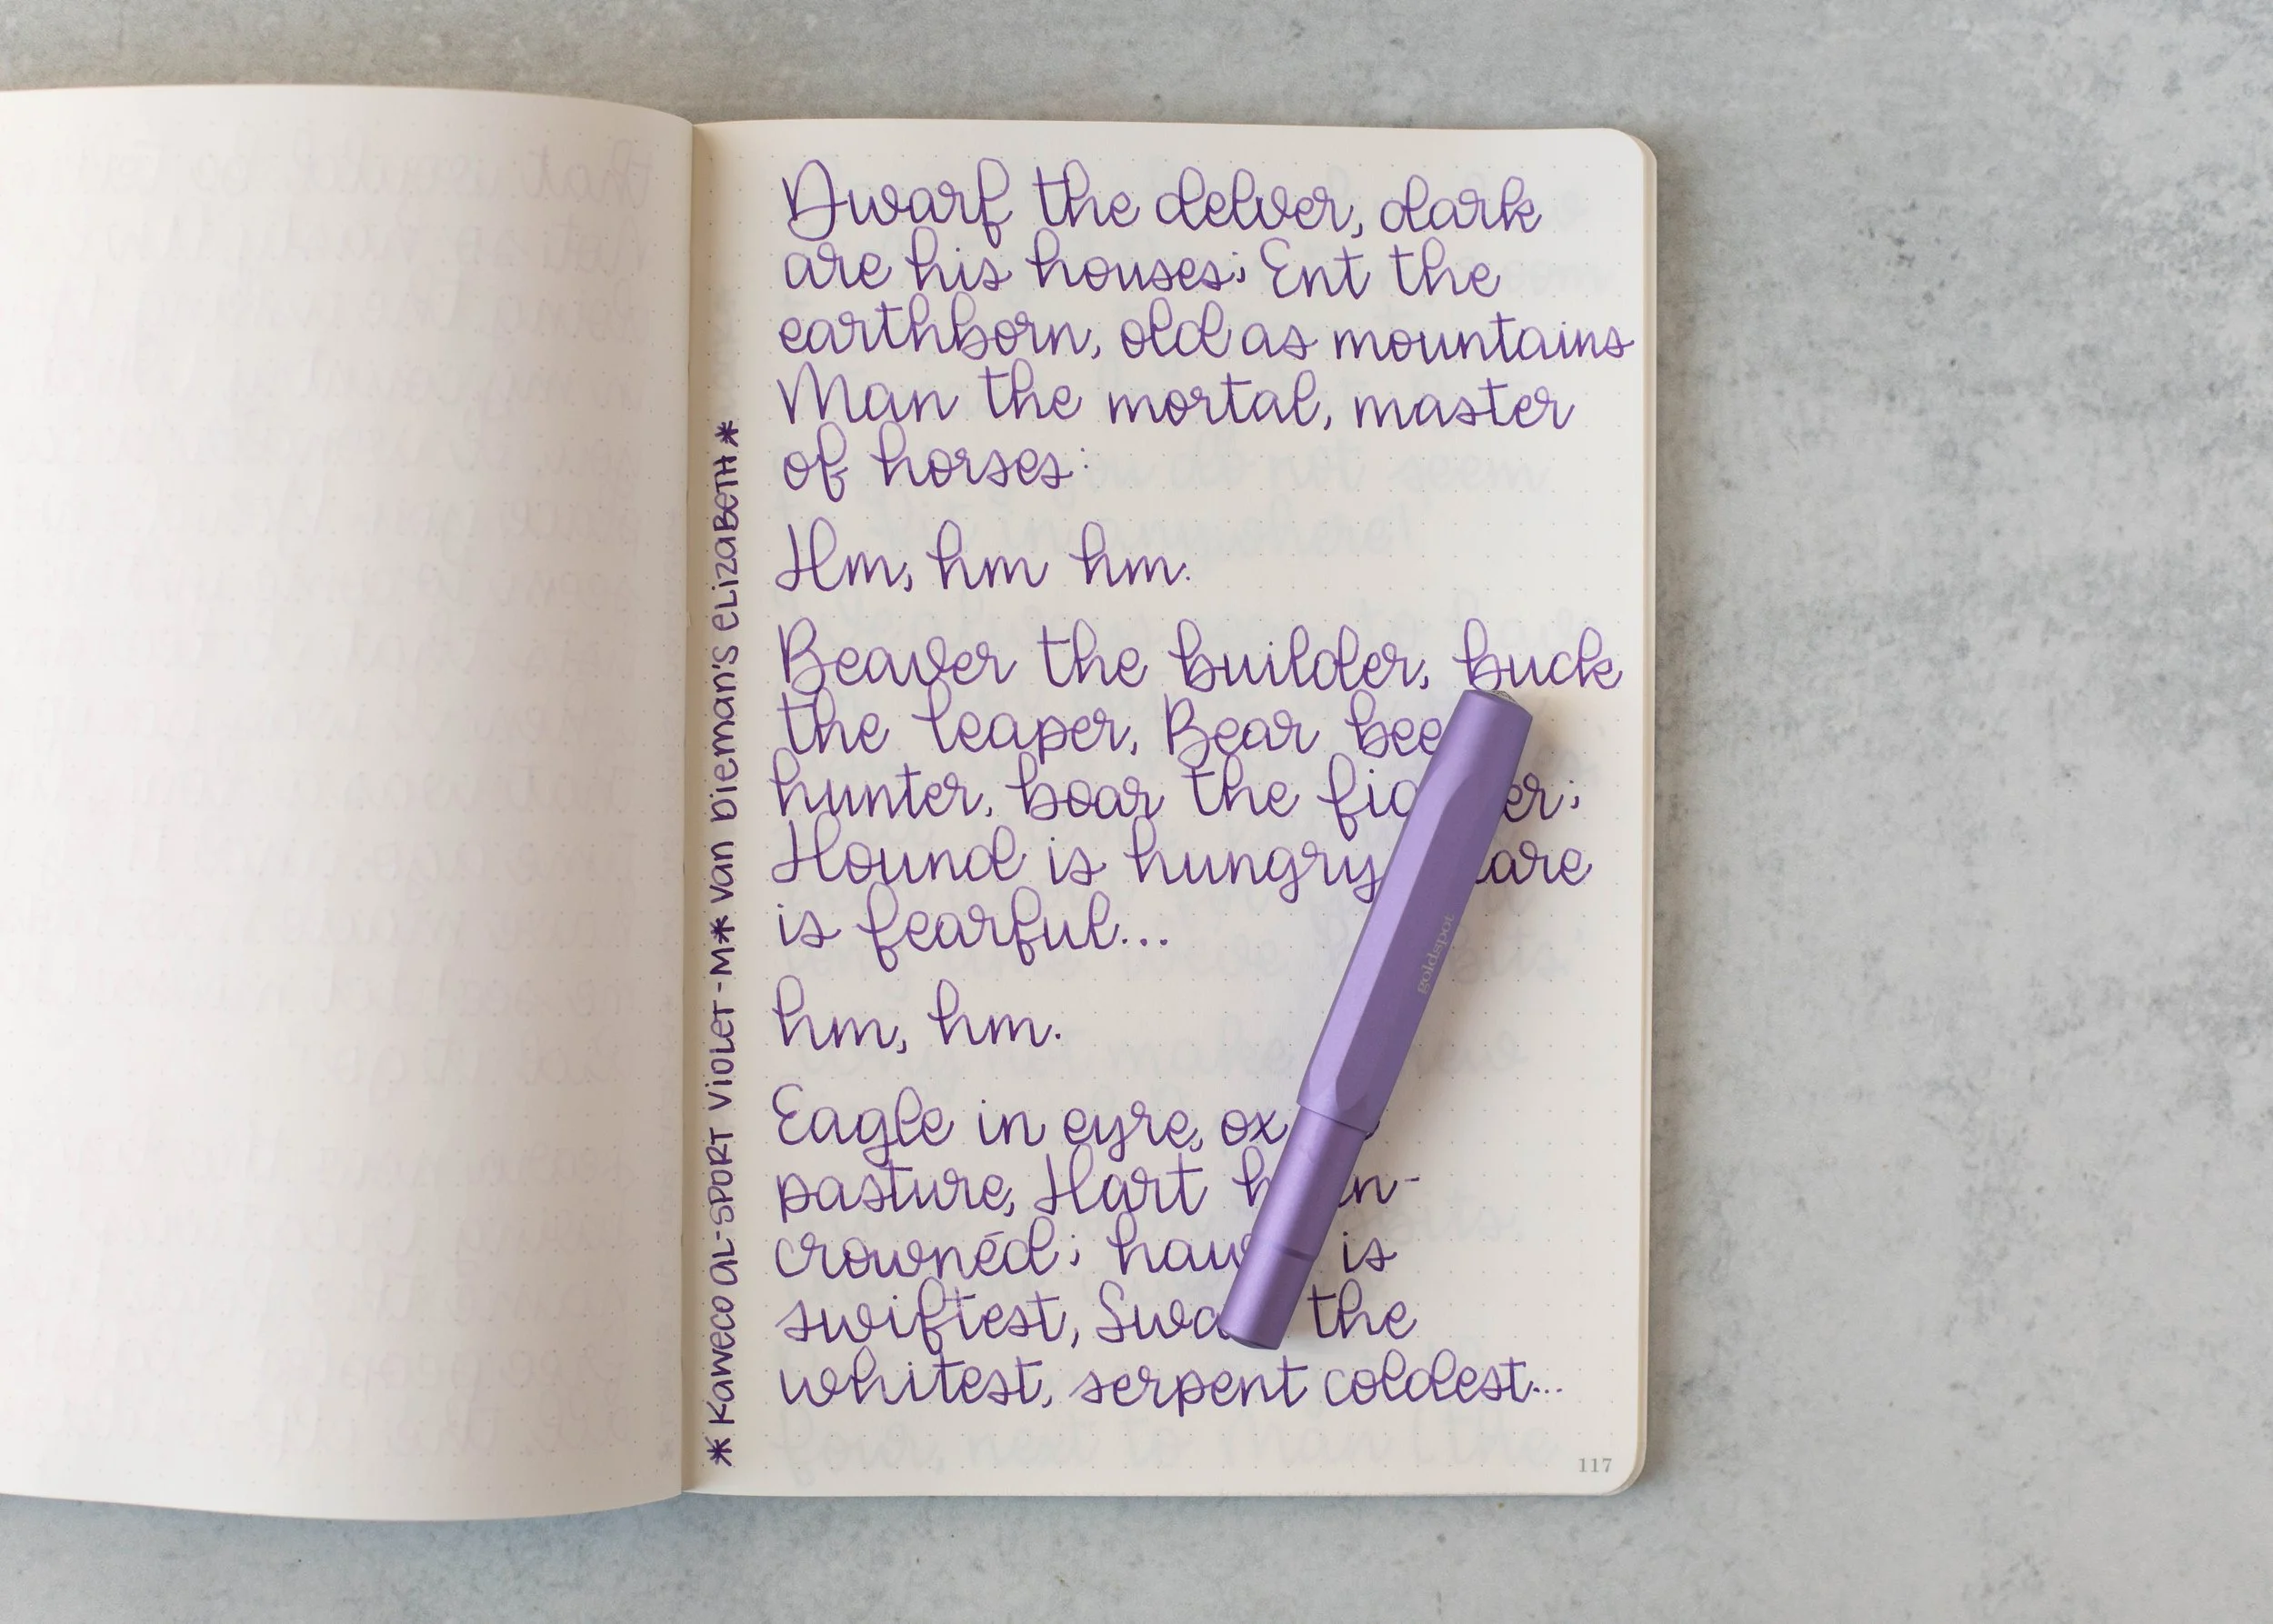 Dwarf the delver, dark
are his houses; Ent the
earthborn, old as mountains
Man the mortal, master
of horses:
Hm, hm hm.
Beaver the builder, buck
the leaper, Bear bee
hunter, boar the fighter;
Hound is hungry, hare
is fearful...
hm, hm.
Eagle in eyre, ox in
pasture, Hart horn-
crownéd; hawk is
swiftest, Swan the
whitest, serpent coldest...
117
* Kaweco AL-SPORT Violet-M * Van Dieman's Elizabeth *
goldspot